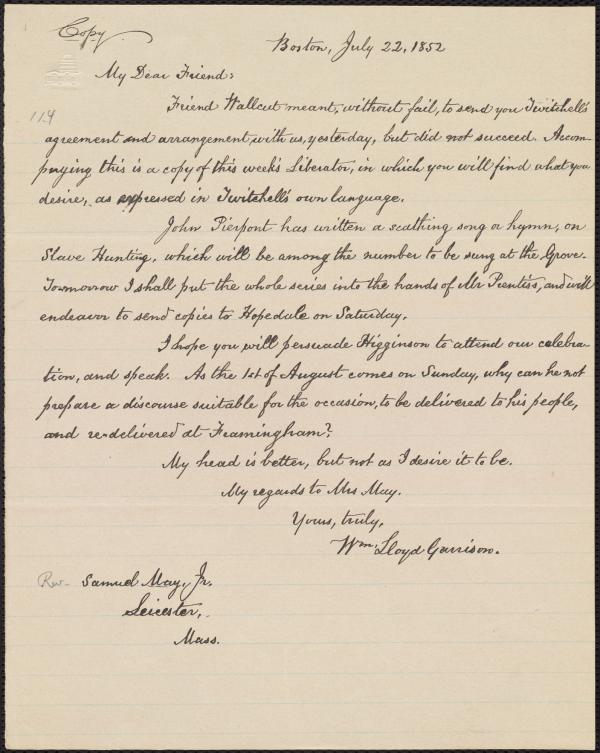 Copy
Boston, July 22, 1852
My Dear Friend:
114
Friend Wallcut meant, without fail, to send you Twitchell's
agreement and arrangement, with us, yesterday, but did not succeed. Accom-
panying this is a copy of this week's Liberator, in which you will find what you
desire, as expressed in Twitchell's own language.
John Pierpont has written a scathing song or hymn, on
Slave Hunting, which will be among the number to be sung at the Grove.
To-morrow I shall put the whole series into the hands of Mr Prentiss, and will
endeavor to send copies to Hopedale on Saturday.
I hope you will persuade Higginson to attend our celebra-
tion, and speak. As the 1st of August comes on Sunday, why can he not
prepare a discourse suitable for the occasion, to be delivered to his people,
and re-delivered at Framingham?
My head is better, but not as I desire it to be.
My regards to Mrs May.
Yours, truly,
Wm. Lloyd Garrison.
Rev. Samuel May, Jr.
Leicester,
Mass.